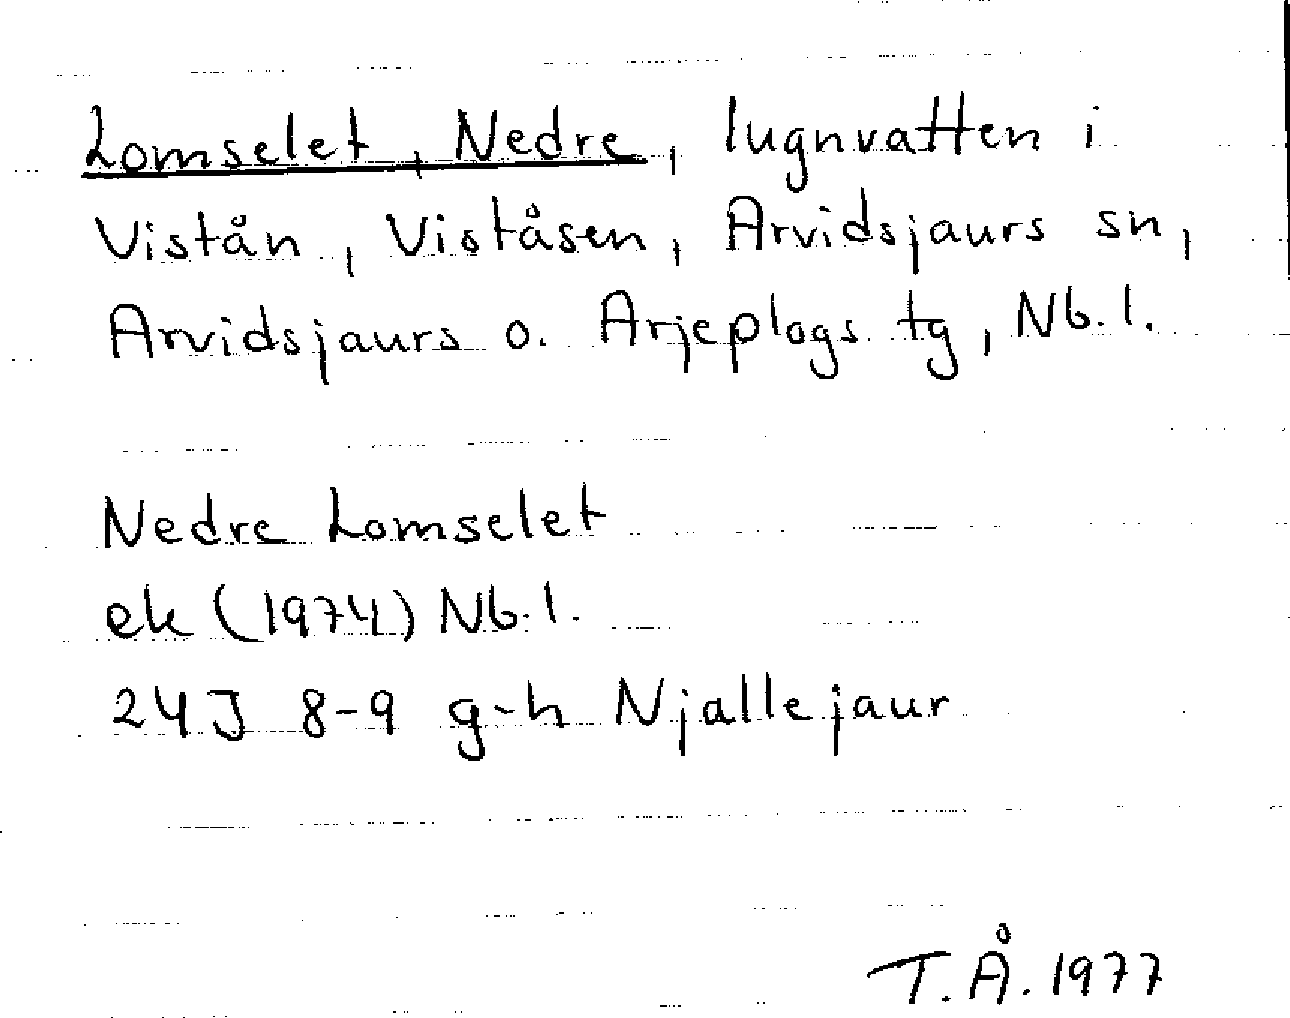 Lomselet, Nedre, lugnvatten i
Vistån, Viståsen, Arvidsjaurs sn,
Arvidsjaurs o. Arjeplogs tg, Nb. l.
Nedre Lomselet
ek (1974) Nb. l.
24J 8-9 g-h Njallejaur
T.Å. 1977